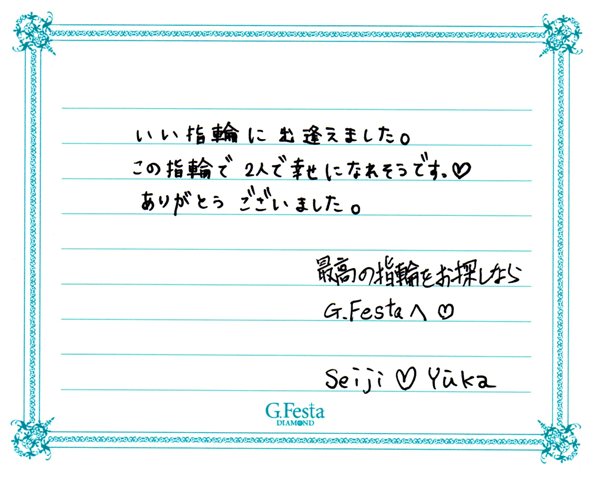 いい指輪に出逢えました。
この指輪で2人で幸せになれそうです。♡
ありがとうございました。
最高の指輪をお探しなら
G.Festaへ♡
Seiji♡Yūka
G.Festa
DIAMOND